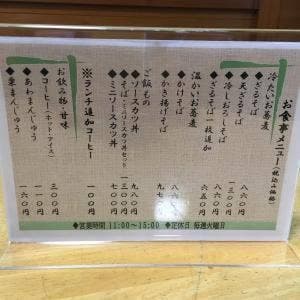 お食事メニュー(税込み価格)
冷たいお蕎麦
◆ざるそば 八六〇
◆天ざるそば 一三〇〇
◆冷しおろしそば 八六〇
◆ざるそば一枚追加 六五〇
温かいお蕎麦
◆かけそば 八六〇
◆かき揚げそば 九七〇
ご飯もの
◆ソースカツ丼 九八〇
◆そば・ミニソースカツ丼セット 一三〇〇
◆ミニソースカツ丼 七〇〇
※ランチ追加コーヒー 一〇〇円
お飲み物・甘味
◆コーヒー(ホット・アイス) 三〇〇円
◆あわまんじゅう 一六〇円
◆栗まんじゅう 一六〇円
◆営業時間 11:00~15:00 ◆定休日 毎週火曜日